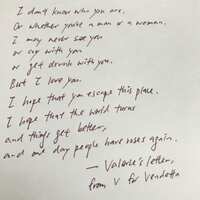 I don't know who you are.
Or whether you're a man or a woman.
I may never see you
or cry with you
or get drunk with you.
But I love you.
I hope that you escape this place.
I hope that the world turns
and things get better,
and one day people have roses again.
— Valerie's letter,
from V for Vendetta